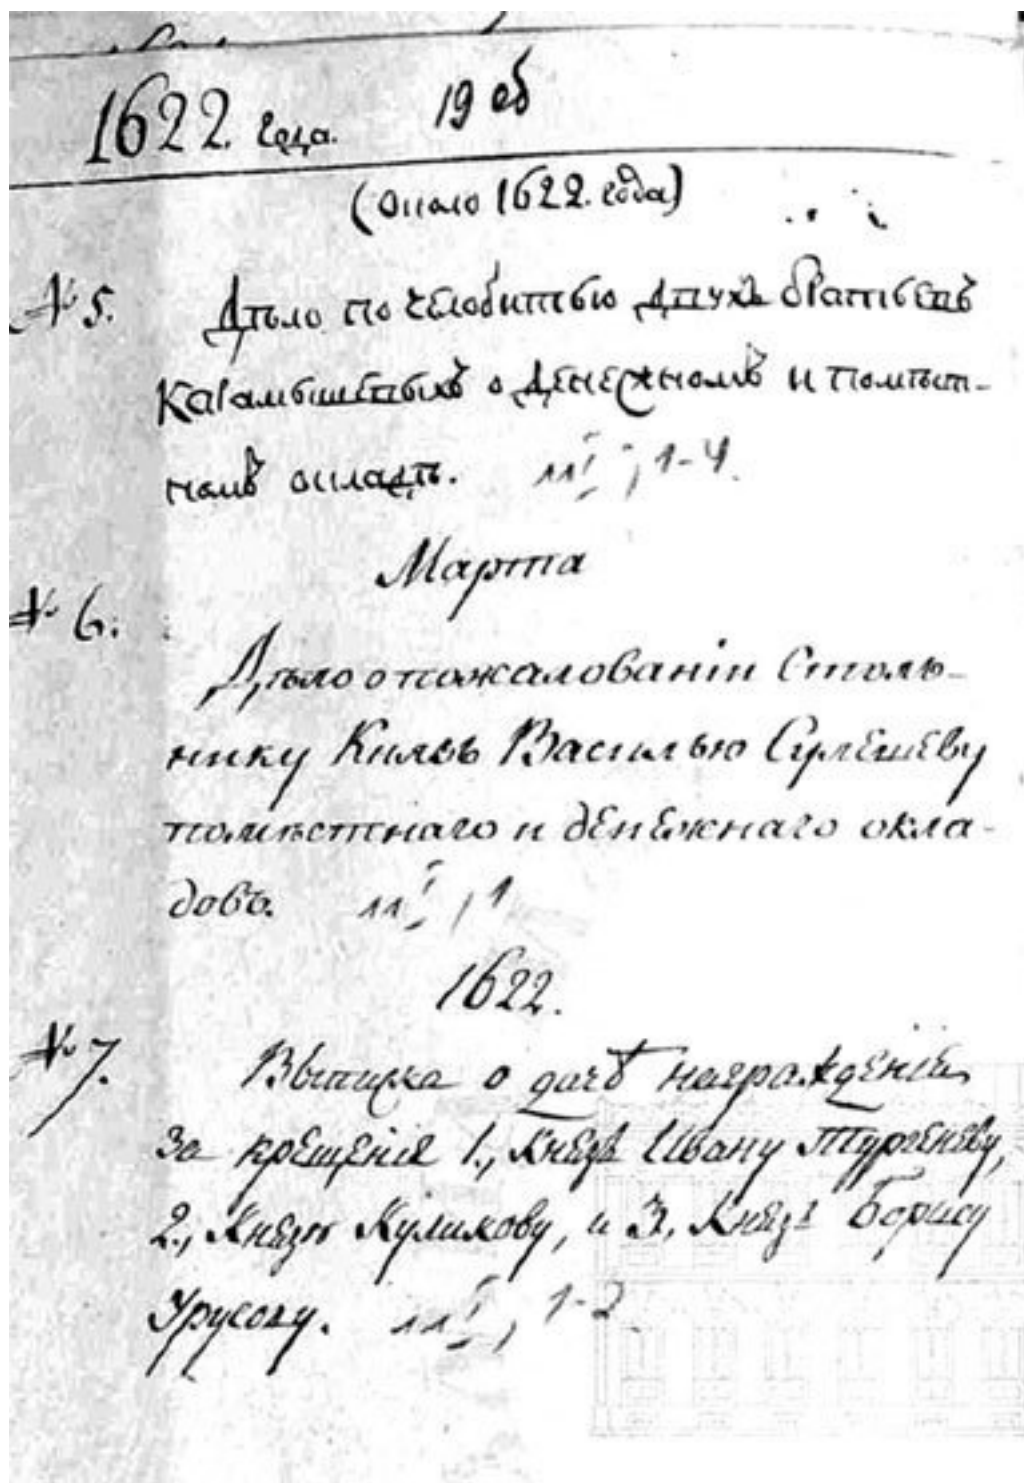 1622. года. 19 об
(около 1622. года)
№ 5. Дѣло по челобитью двухъ братьевъ
Карамышевыхъ о денежномъ и помѣст-
номъ окладѣ. лл , 1-4.
Марта
№ 6. Дѣло о пожалованіи Столь-
нику Князь Василью Сулешеву
помѣстнаго и денежнаго окла-
довъ. лл , 1
1622.
№ 7. Выписка о дачѣ награжденія
за крещеніе 1., Князь Ивану Тургеневу,
2., Князю Куликову, и 3., Князь Борису
Урусову. лл , 1-2